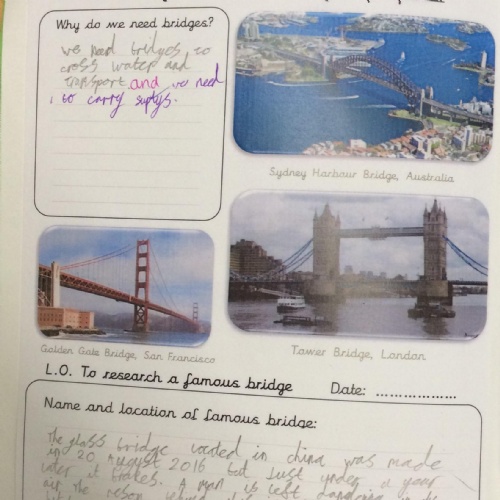 Why do we need bridges?
we need bridges to
cross water and
transport and we need
to carry suplys.
Sydney Harbour Bridge, Australia
Golden Gate Bridge, San Francisco
Tower Bridge, London
L.O. To research a famous bridge Date: ..................
Name and location of famous bridge:
The glass bridge located in china was made
in 20 August 2016 but just under a year
later it brakes. A man is left dangering in
air the